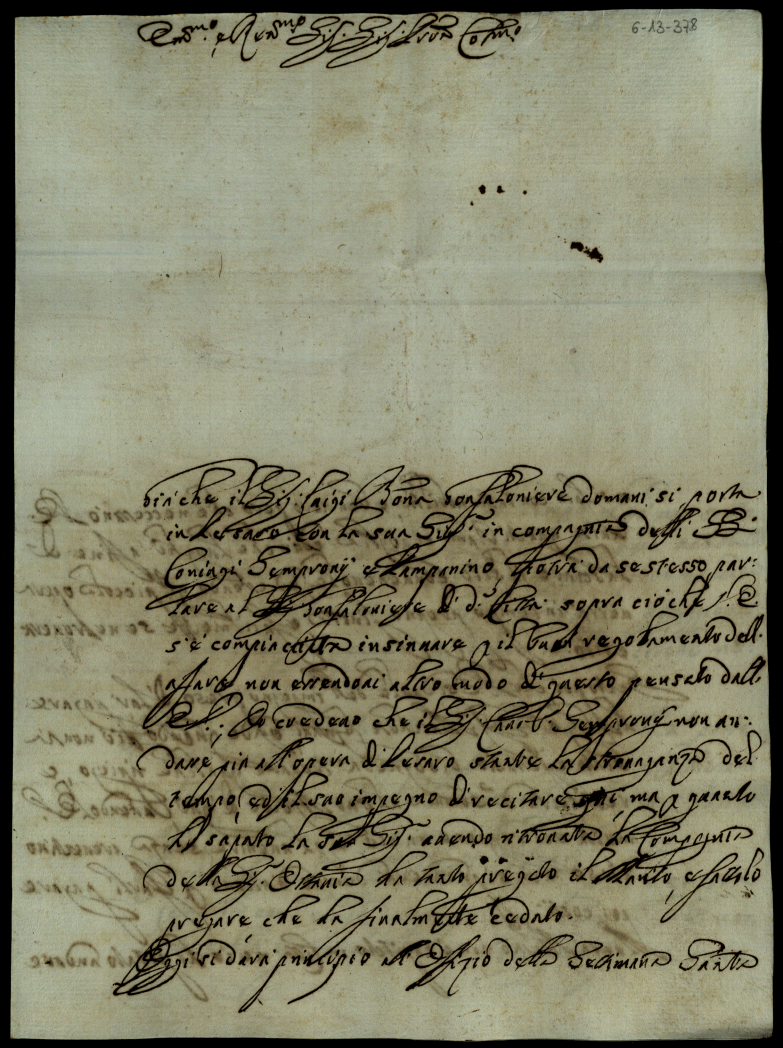 Em.mo e Rev.mo Sig. Sig. P.rone Col.mo
6-13-378
Giàche il Sig. Luigi Bona Gonfaloniere domani si porta
in Pesaro con la sua Sig.ra in compagnia delli SS.
Coniugi Sempronij e Campanino, potrà da se stesso par-
lare al Gonfaloniere di d.a Città sopra ciò che V. E.
s'è compiaciuta insinuare p il buon regolamento dell
affare non essendoci altro modo di questo pensato dall
E. V.; Io credevo che il Sig. Sempronij non an-
dare più all opera di Pesaro stante la stravaganza del
tempo, ed il suo impegno di recitare qui, ma p quanto
hò saputo la Sua Sig.ra avendo ritrovata la Compagnia
della Sig.ra hà tanto pregato il Marito, e fattolo
pregare che hà finalmente cedato.
Oggi si darà principio al Offizio della Settimana Santa